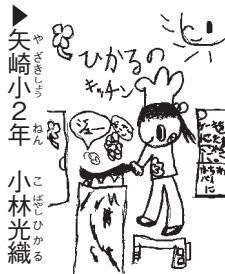 ▶矢崎小2年 小林光織
やざきしょう ねん こばやしひかる
ひかるの
キッチン
ジュー